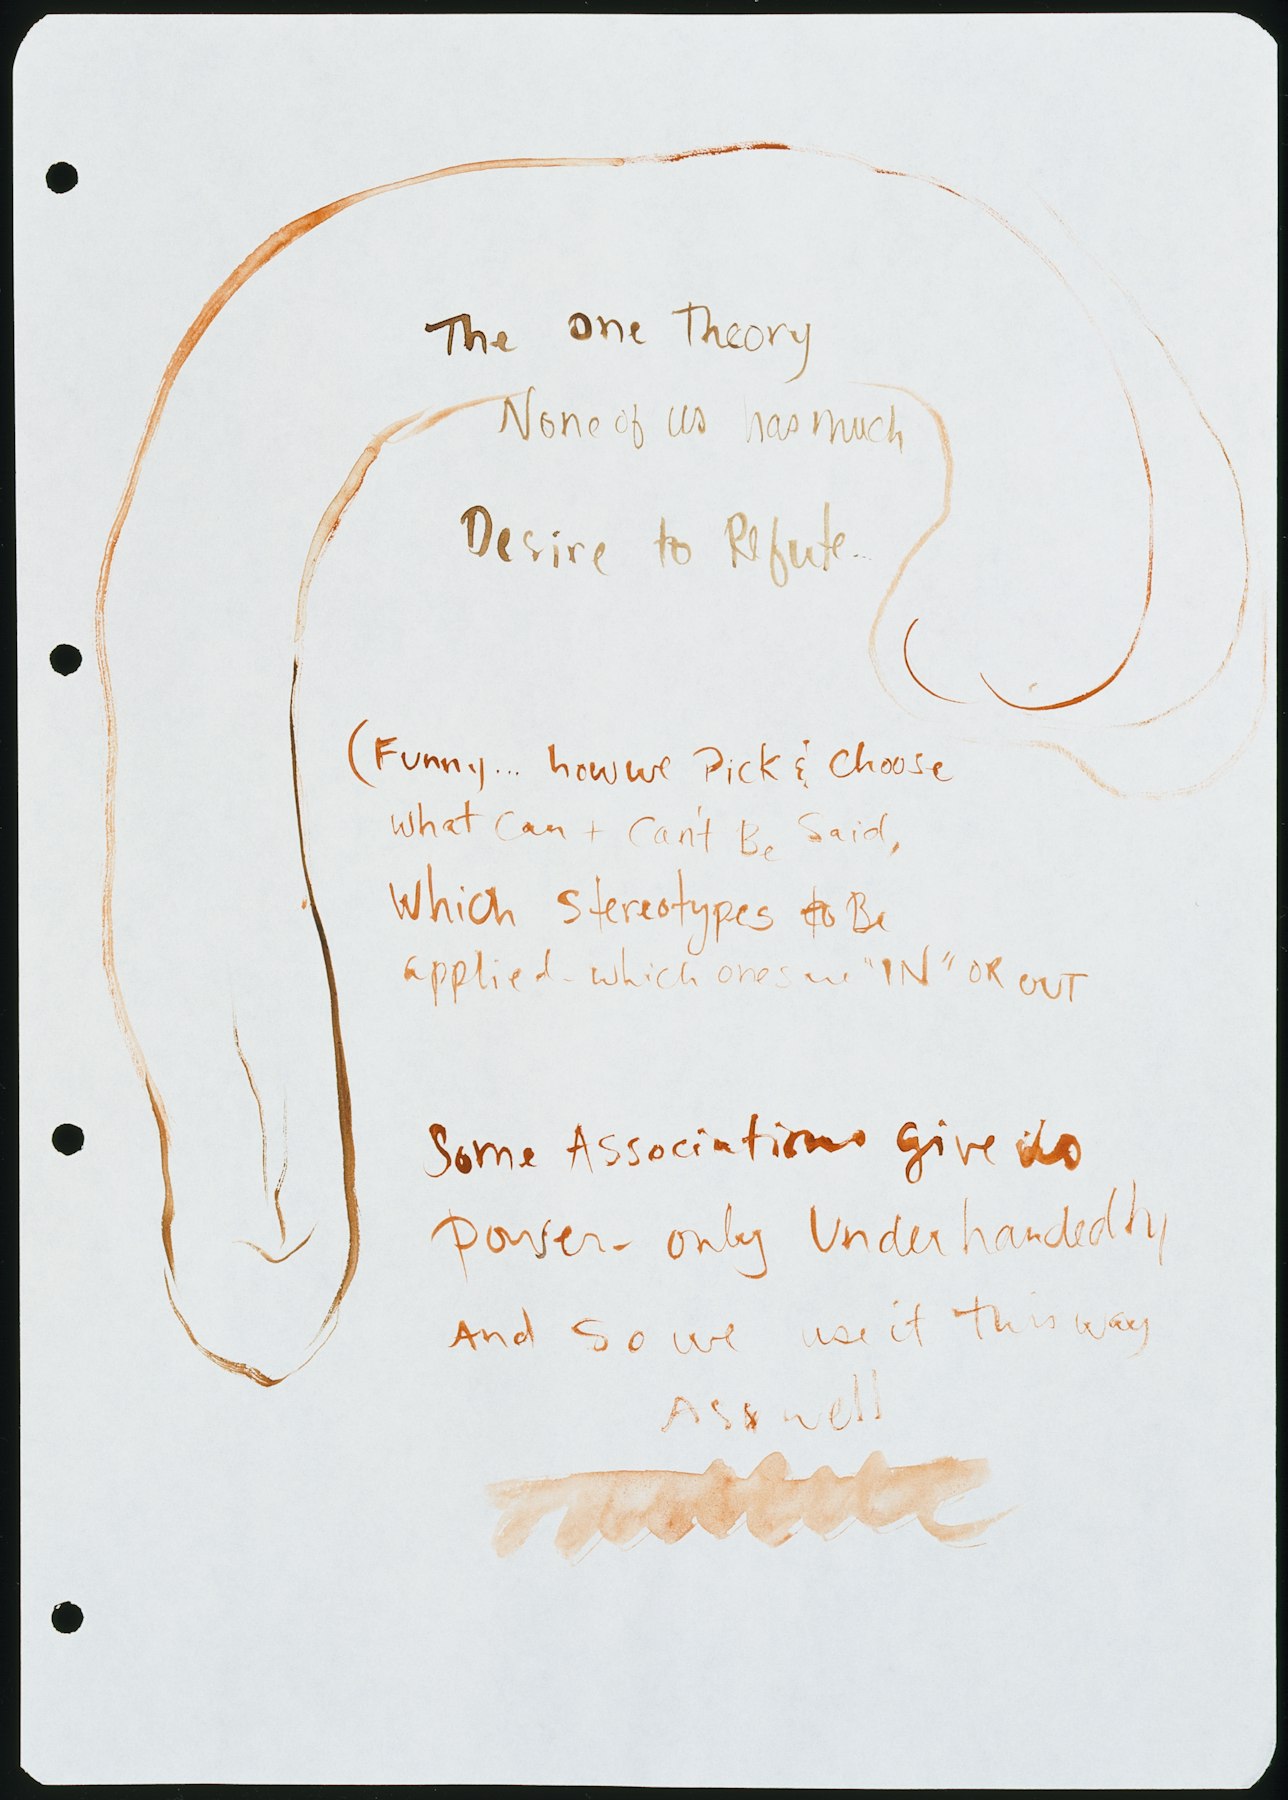 The one Theory
None of us has much
Desire to Refute...
(Funny... how we Pick & Choose
what can + can't Be Said,
Which stereotypes to Be
applied - which ones are "IN" OR OUT
Some Associations give us
Power - only Underhandedly
And so we use it this way
As well